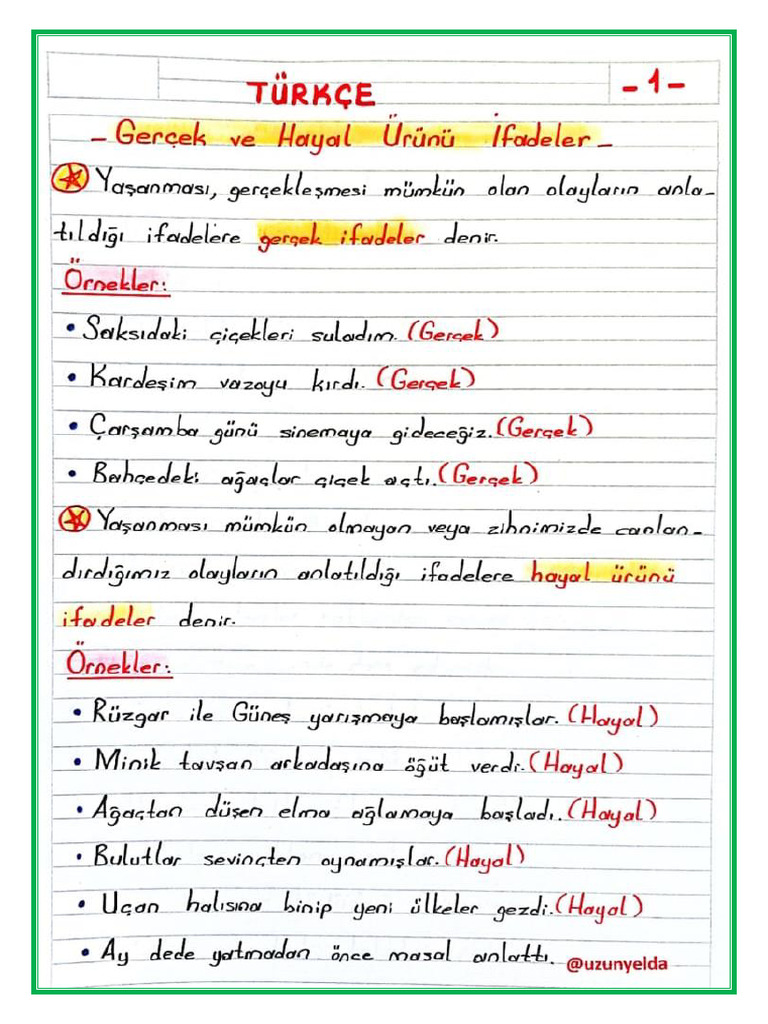 TÜRKÇE
- 1 -
- Gerçek ve Hayal Ürünü İfadeler -
Yaşanması, gerçekleşmesi mümkün olan olayların anla-
tıldığı ifadelere gerçek ifadeler denir.
Örnekler:
• Saksıdaki çiçekleri suladım. (Gerçek)
• Kardeşim vazoyu kırdı. (Gerçek)
• Çarşamba günü sinemaya gideceğiz. (Gerçek)
• Bahçedeki ağaçlar çiçek açtı. (Gerçek)
Yaşanması mümkün olmayan veya zihnimizde canlan-
dırdığımız olayların anlatıldığı ifadelere hayal ürünü
ifadeler denir.
Örnekler:
• Rüzgar ile Güneş yarışmaya başlamışlar. (Hayal)
• Minik tavşan arkadaşına öğüt verdi. (Hayal)
• Ağaçtan düşen elma ağlamaya başladı. (Hayal)
• Bulutlar sevinçten oynamışlar. (Hayal)
• Uçan halısına binip yeni ülkeler gezdi. (Hayal)
• Ay dede yatmadan önce masal anlattı. @uzunyelda